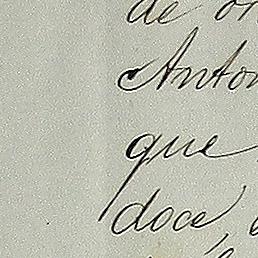 de or
Anton
que
doce,